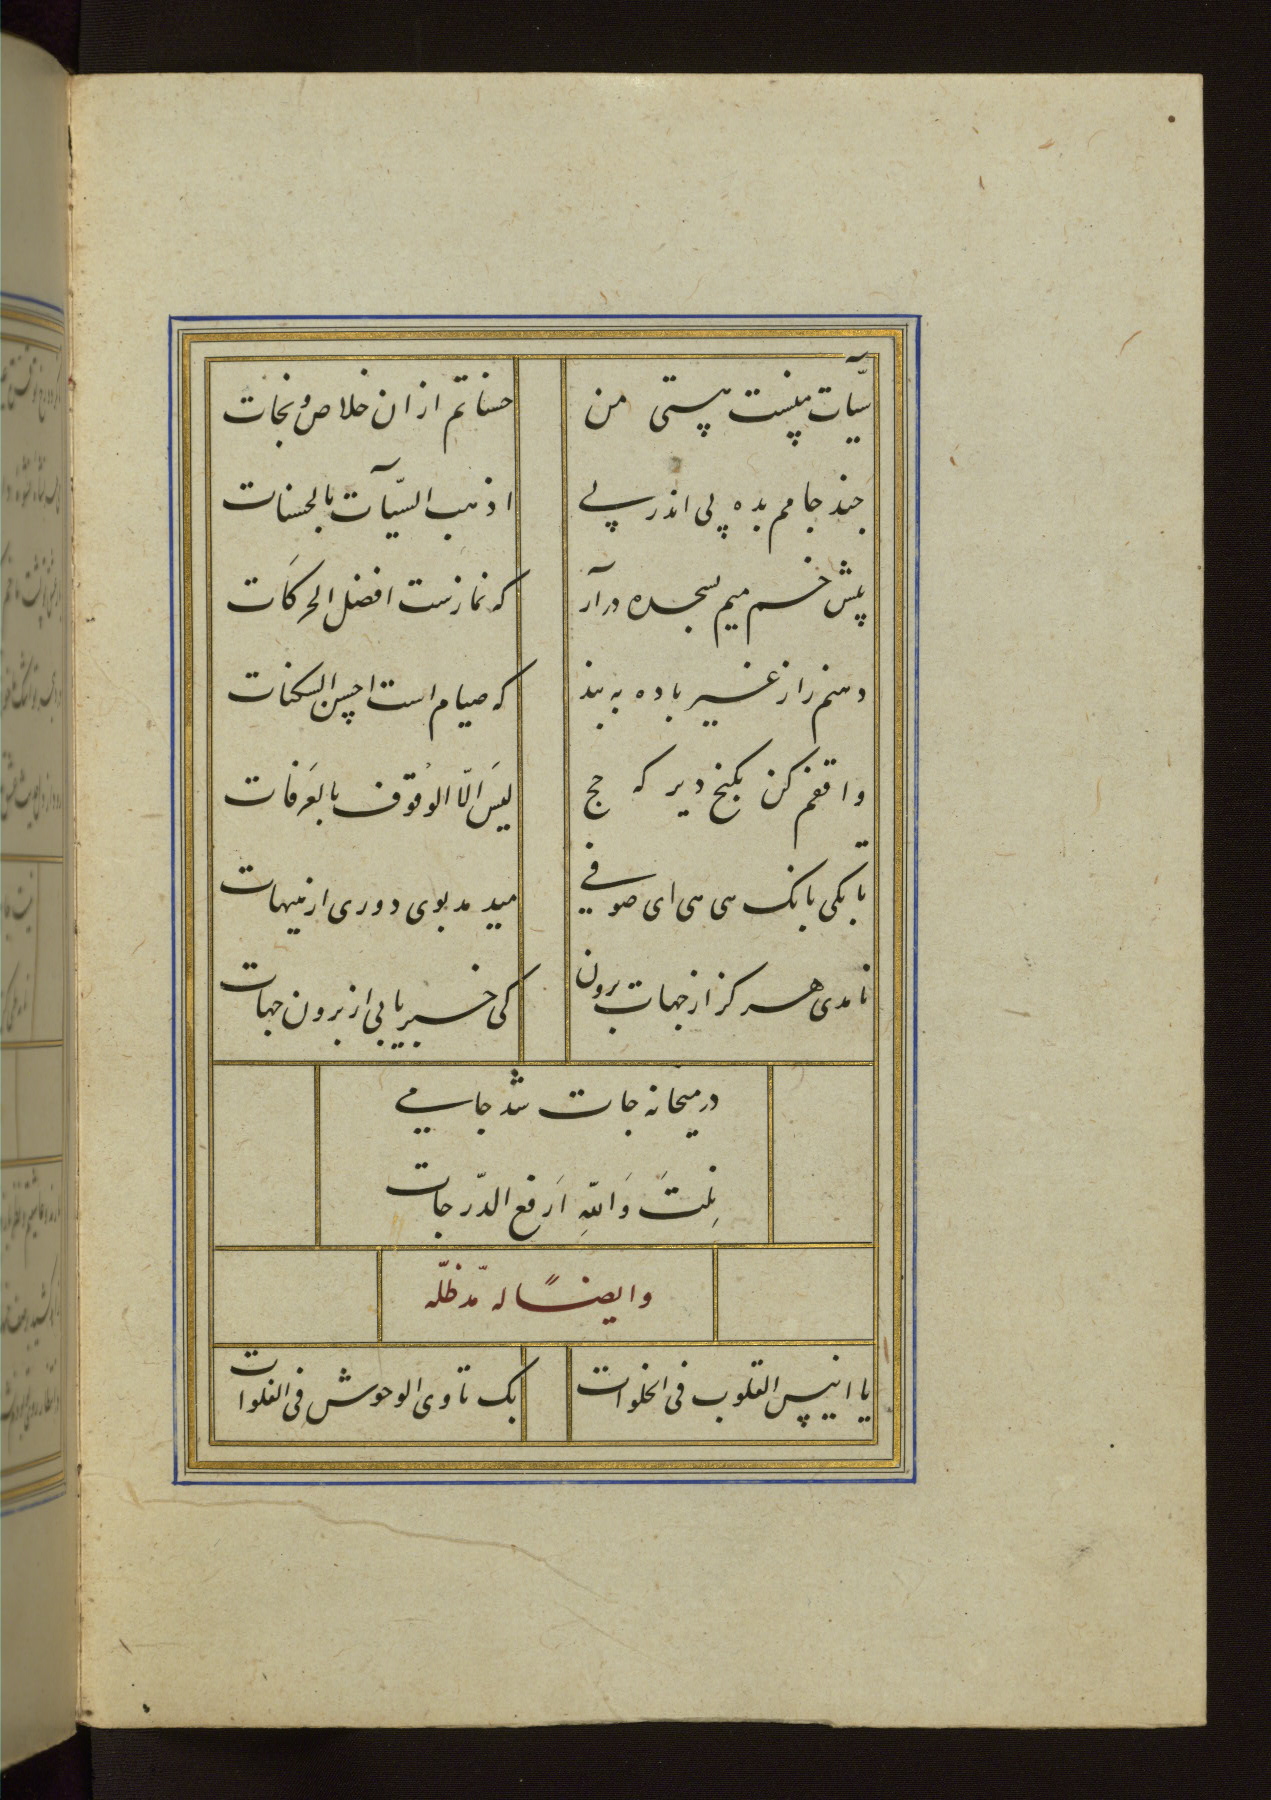 سیّآت منست هستی من
حسناتم ازان خلاص و نجات
چند جامم بده پی اندر پی
اذهب السیّآت بالحسنات
پیش خم میم بسجده درآر
که نمازست افضل الحرکَات
دهنم را ز غیر باده به بند
که صیام است احسن السکنات
واقفم کن بکنج دیر که حج
لیسَ الّا الوُقوف بالعَرفات
تا بکی بانک هی هی ای صوفی
میدهد بوی دوری از هیهات
نامدی هرکز از جهات برون
کی خبر یابی از برون جهات
در میخانه جات شد جامی
نِلتَ وَاللّهِ اَرفع الدّرجات
وایضًا له مدّ ظلّه
یا انیس القلوب فی الخلوات
بک تاوی الوحوش فِی الفلوات